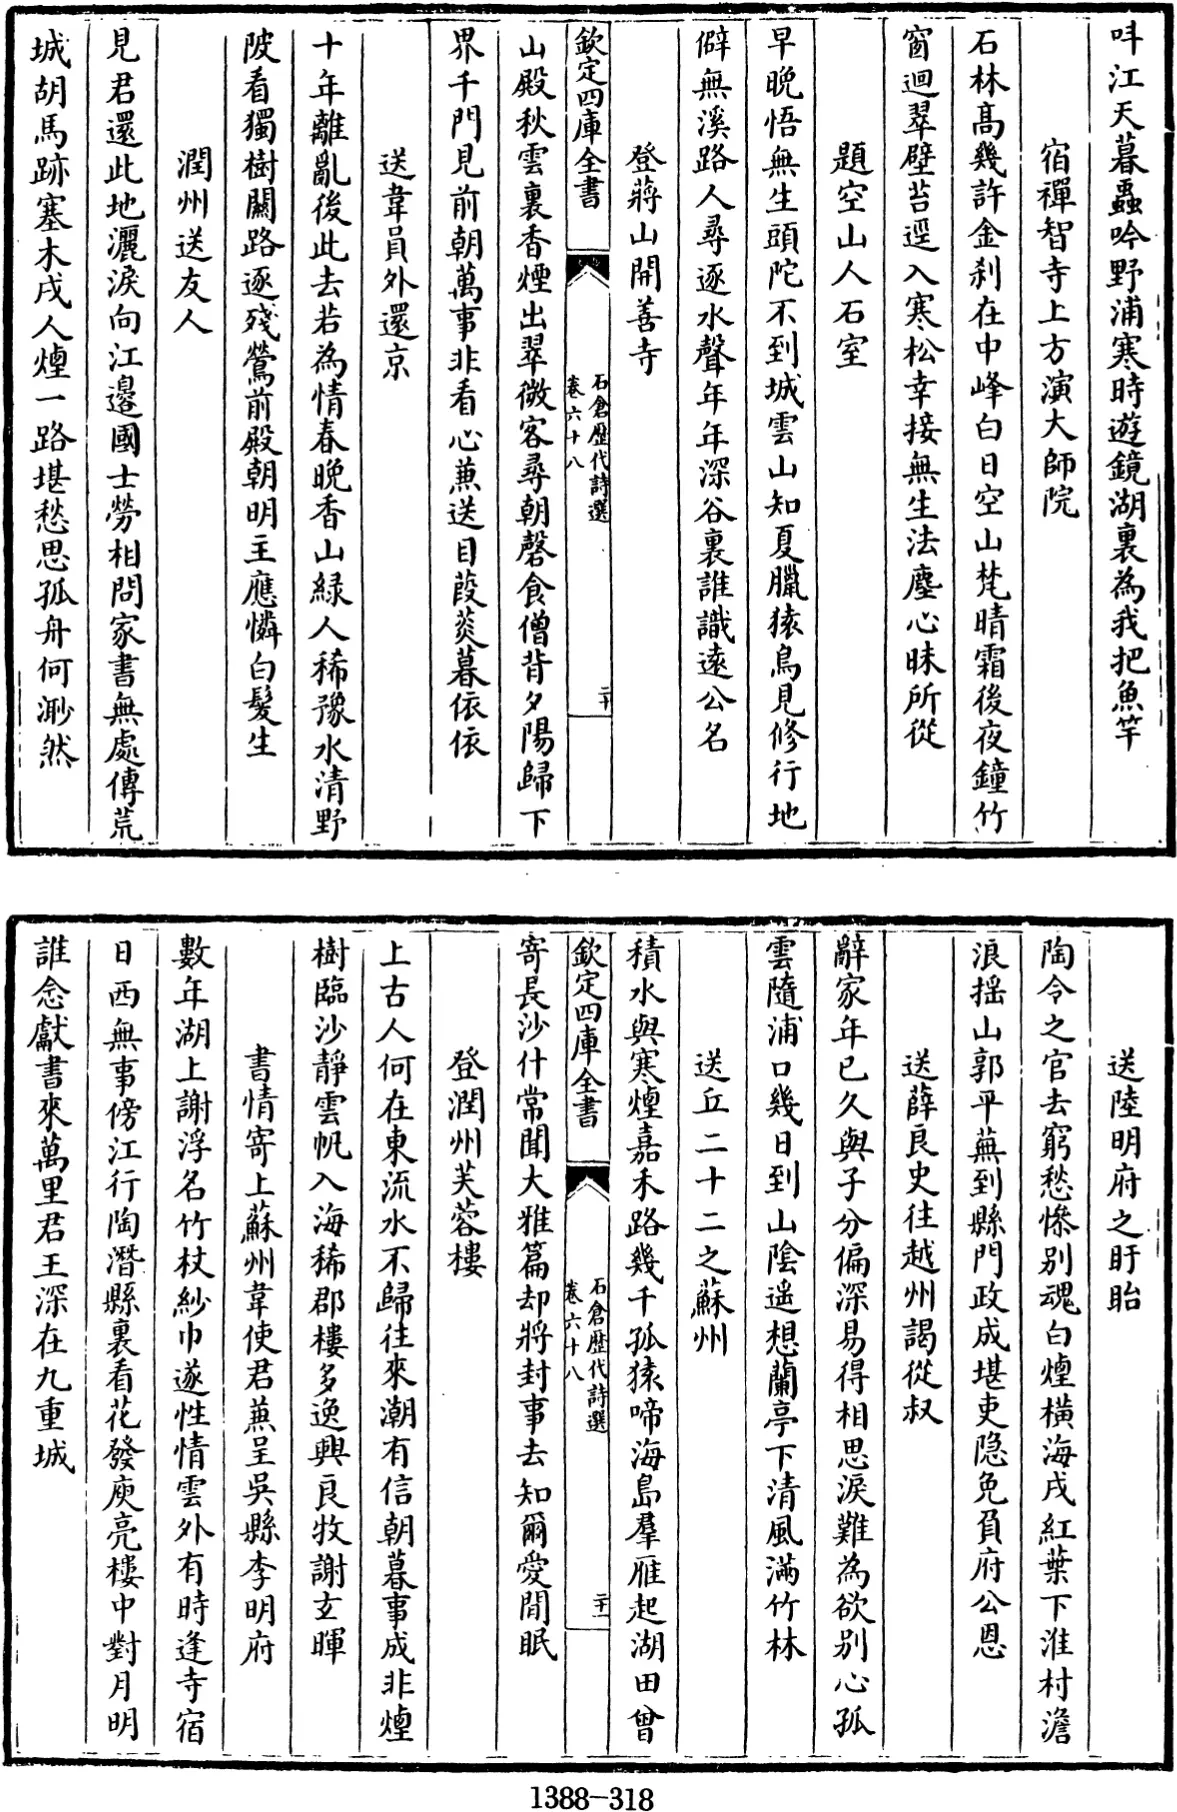 呌江天暮蟲吟野浦寒時遊鏡湖裏為我把魚竿
宿禪智寺上方演大師院
石林髙幾許金刹在中峰白日空山梵晴霜後夜鐘竹
窗迴翠壁苔逕入寒松幸接無生法塵心昧所從
題空山人石室
早晚悟無生頭陀不到城雲山知夏臘猿鳥見修行地
僻無溪路人尋逐水聲年年深谷裏誰識逺公名
登蔣山開善寺
欽定四庫全書
石倉歷代詩選
卷六十八
二十
山殿秋雲裏香煙出翠微客尋朝磬食僧背夕陽歸下
界千門見前朝萬事非看心蕪送目葭菼暮依依
送韋員外還京
十年離亂後此去若為情春晚香山緑人稀豫水清野
陂看獨樹闗路逐殘鶯前殿朝明主應憐白髮生
潤州送友人
見君還此地灑淚向江邉國士勞相問家書無處傳荒
城胡馬跡塞木戍人煙一路堪愁思孤舟何渺然
送陸明府之盱眙
陶令之官去窮愁慘别魂白煙横海戍紅葉下淮村澹
浪揺山郭平蕪到縣門政成堪吏隐免負府公恩
送薛良史往越州謁從叔
辭家年已久與子分偏深易得相思淚難為欲别心孤
雲隨浦口幾日到山陰遥想蘭亭下清風滿竹林
送丘二十二之蘇州
積水與寒煙嘉禾路幾千孤猿啼海島羣雁起湖田曾
欽定四庫全書
石倉歷代詩選
卷六十八
二十一
寄長沙什常聞大雅篇却將封事去知爾愛閒眠
登潤州芙蓉樓
上古人何在東流水不歸往來潮有信朝暮事成非煙
樹臨沙靜雲帆入海稀郡樓多逸興良牧謝玄暉
書情寄上蘇州韋使君蕪呈吳縣李明府
數年湖上謝浮名竹杖紗巾遂性情雲外有時逢寺宿
日西無事傍江行陶潛縣裏看花發庾亮樓中對月明
誰念獻書來萬里君王深在九重城
1388-318